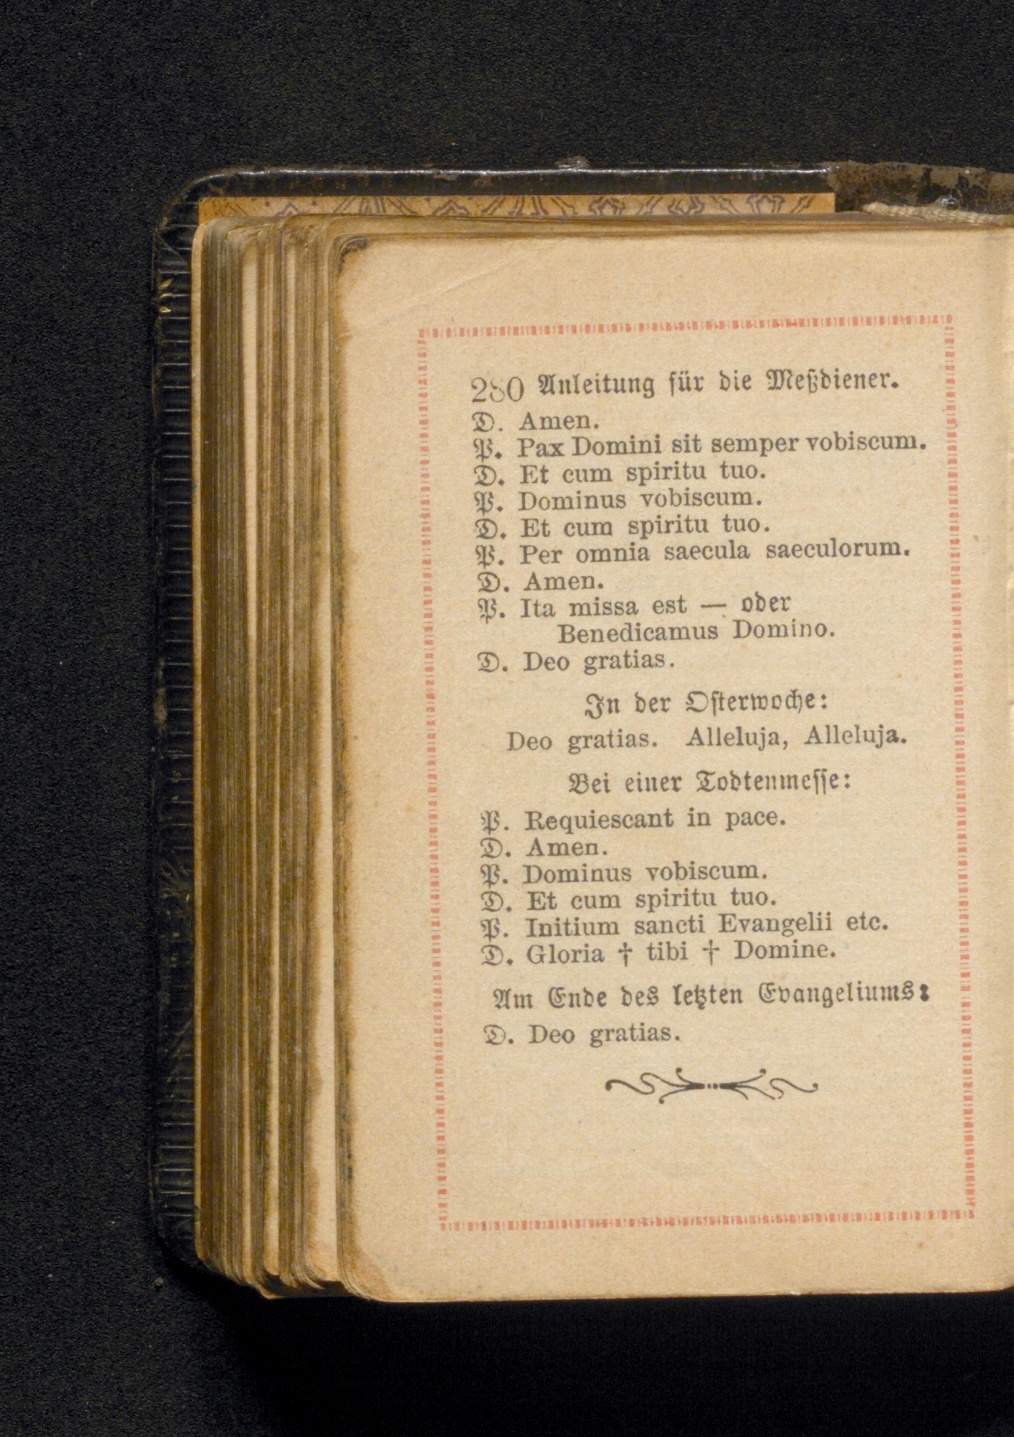 280 Anleitung für die Meßdiener.
D. Amen.
P. Pax Domini sit semper vobiscum.
D. Et cum spiritu tuo.
P. Dominus vobiscum.
D. Et cum spiritu tuo.
P. Per omnia saecula saeculorum.
D. Amen.
P. Ita missa est — oder
Benedicamus Domino.
D. Deo gratias.
In der Osterwoche:
Deo gratias. Alleluja, Alleluja.
Bei einer Todtenmesse:
P. Requiescant in pace.
D. Amen.
P. Dominus vobiscum.
D. Et cum spiritu tuo.
P. Initium sancti Evangelii etc.
D. Gloria † tibi † Domine.
Am Ende des letzten Evangeliums:
D. Deo gratias.